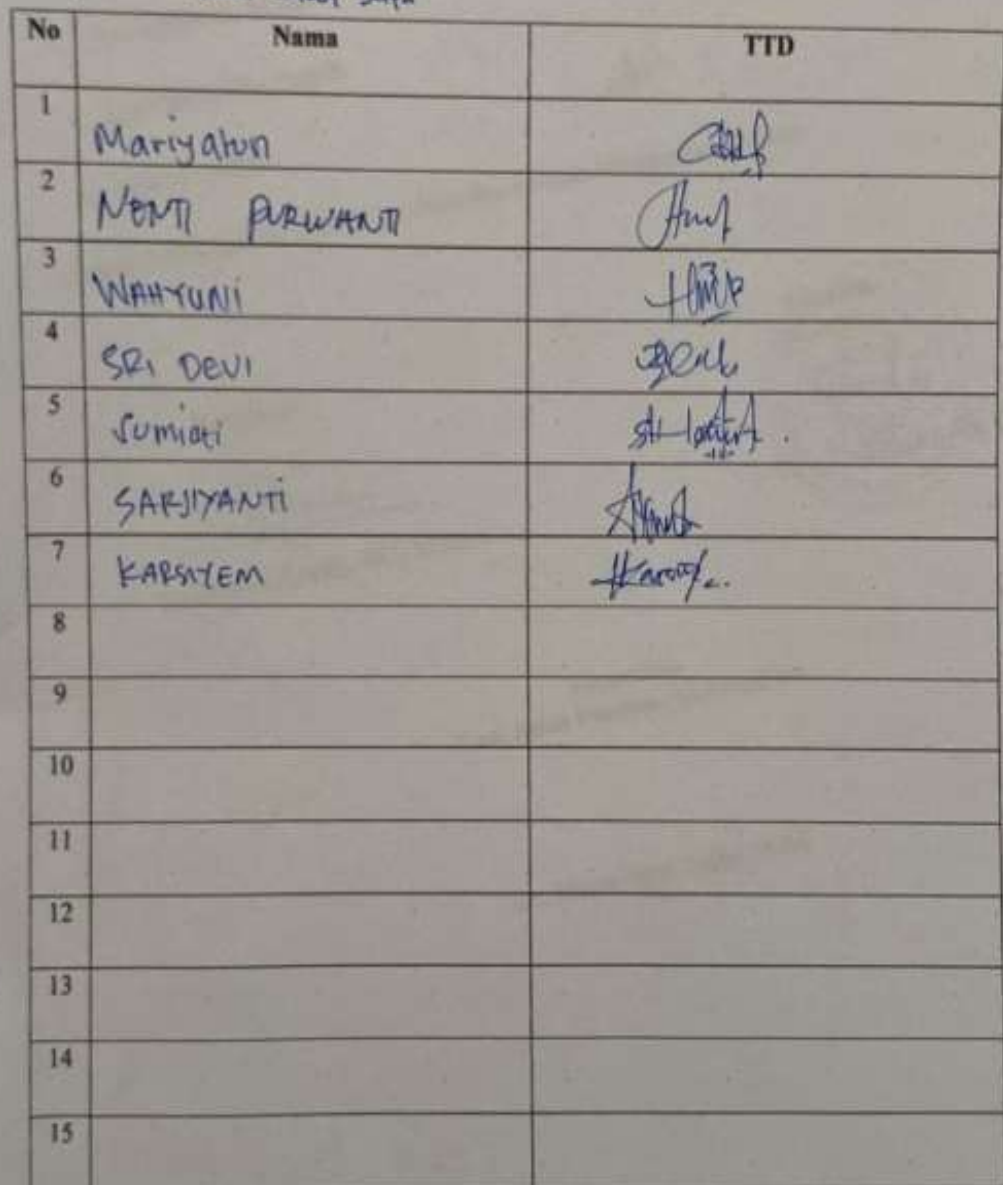 No Nama TTD
1 Mariyatun
2 NENTI PURWANTI
3 WAHYUNI
4 SRI DEVI
5 Sumiati
6 SARJIYANTI
7 KARSIYEM
8
9
10
11
12
13
14
15